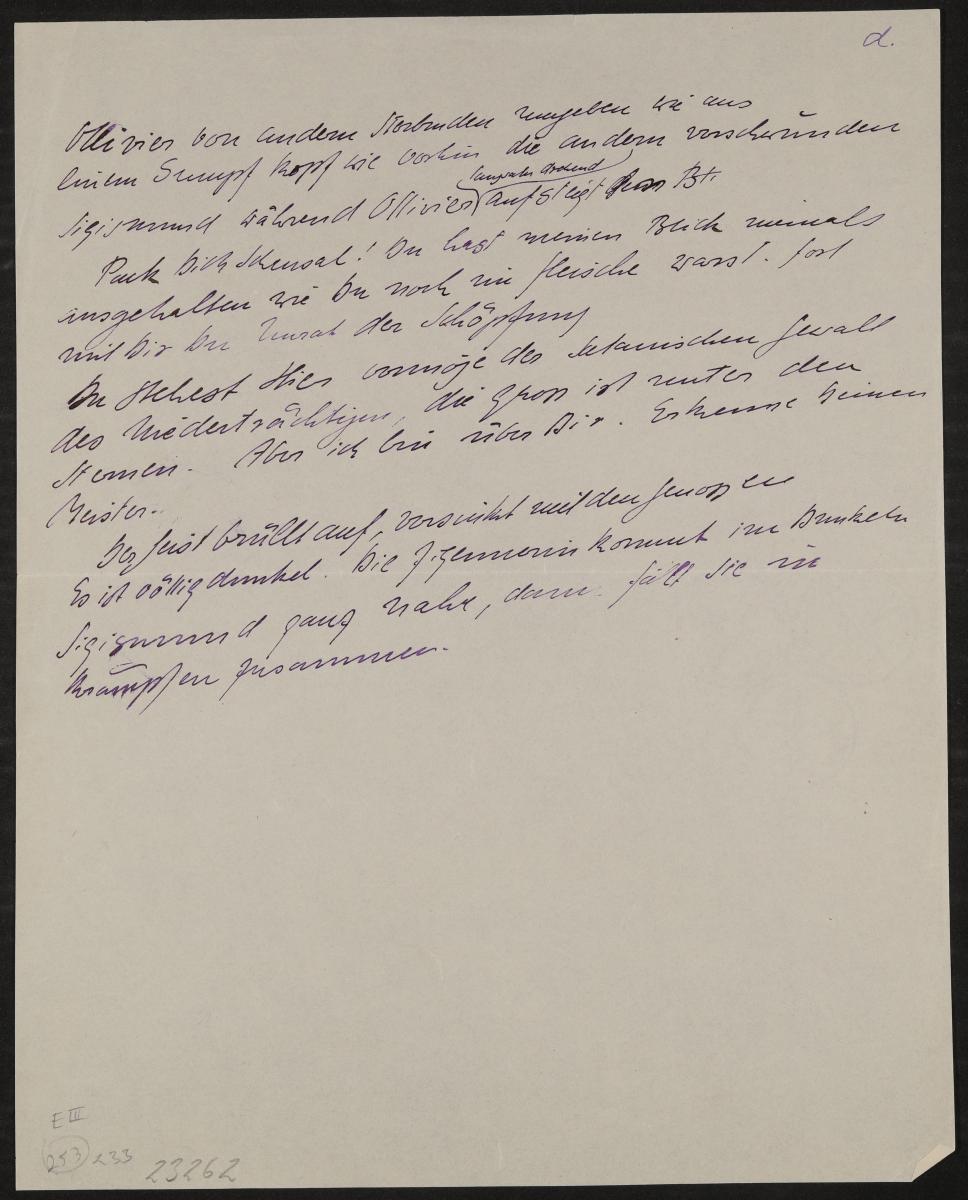 d.
Ollivier von andern Sterbenden umgeben wie aus
einem Sumpf Kopf wie vorhin die andern verschwunden
langsam drohend
Sigismund während Ollivier aufsteigt
Pack Dich Scheusal! Du hast meinen Blick niemals
ausgehalten wie Du noch im Fleische warst. Fort
mit Dir Du Unrat der Schöpfung
Du stehest Hier vermöge der satanischen Gewalt
des Niederträchtigen, die gross ist unter den
Sternen. Aber ich bin über Dir. Erkenne Deinen
Meister.
Der Geist brüllt auf, versinkt mit den Genossen
Es ist völlig dunkel. Die Zigeunerin kommt im Dunkeln
Sigismund ganz nahe, dann fällt sie in
Krämpfen zusammen.
E III
253 233 23262